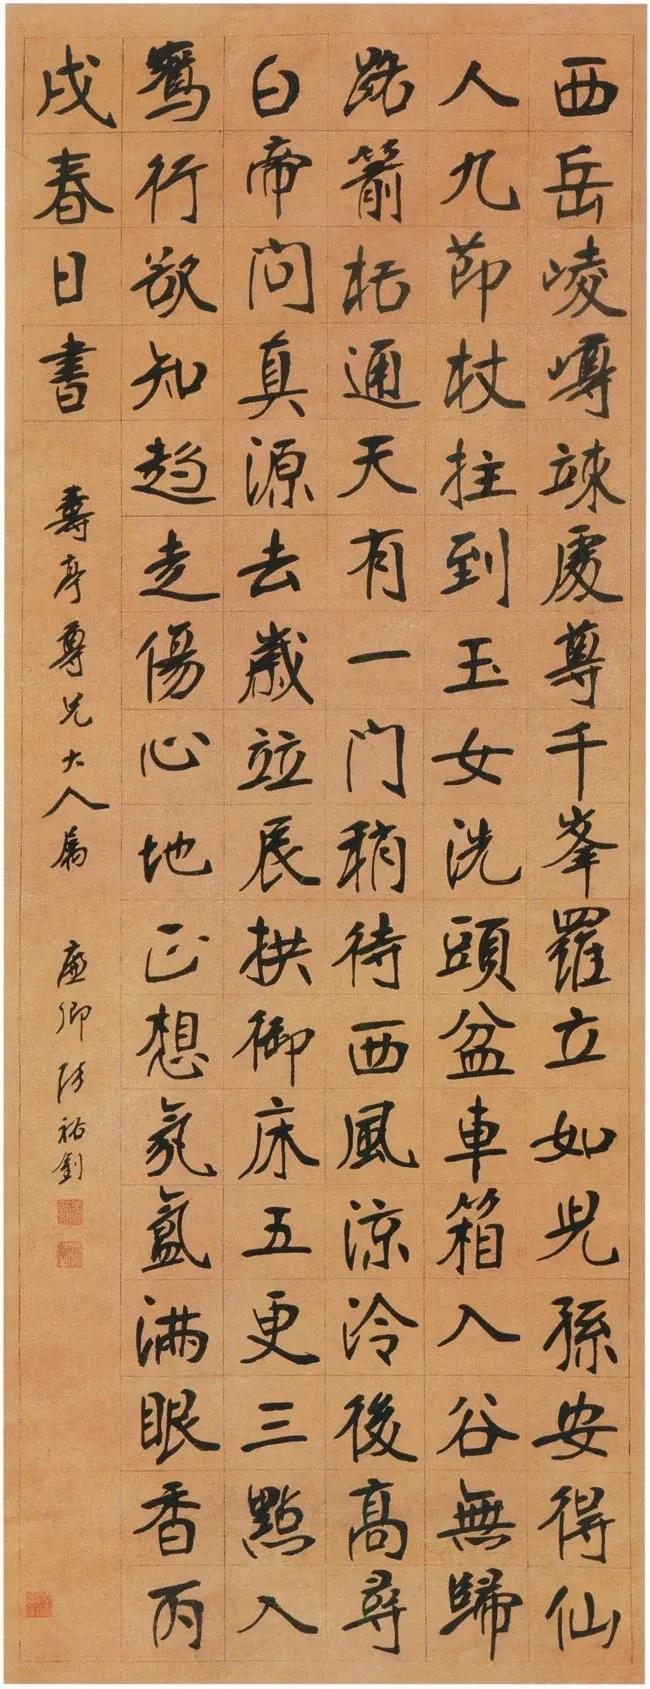 西岳崚嶒竦處尊千峯羅立如兒孫安得仙
人九節杖拄到玉女洗頭盆車箱入谷無歸
路箭栝通天有一門稍待西風涼冷後高尋
白帝問真源去歲竝辰拱御床五更三點入
鵷行欲知趨走傷心地正想氛氳滿眼香丙
戌春日書
壽亭尊兄大人屬
廉卿張裕釗